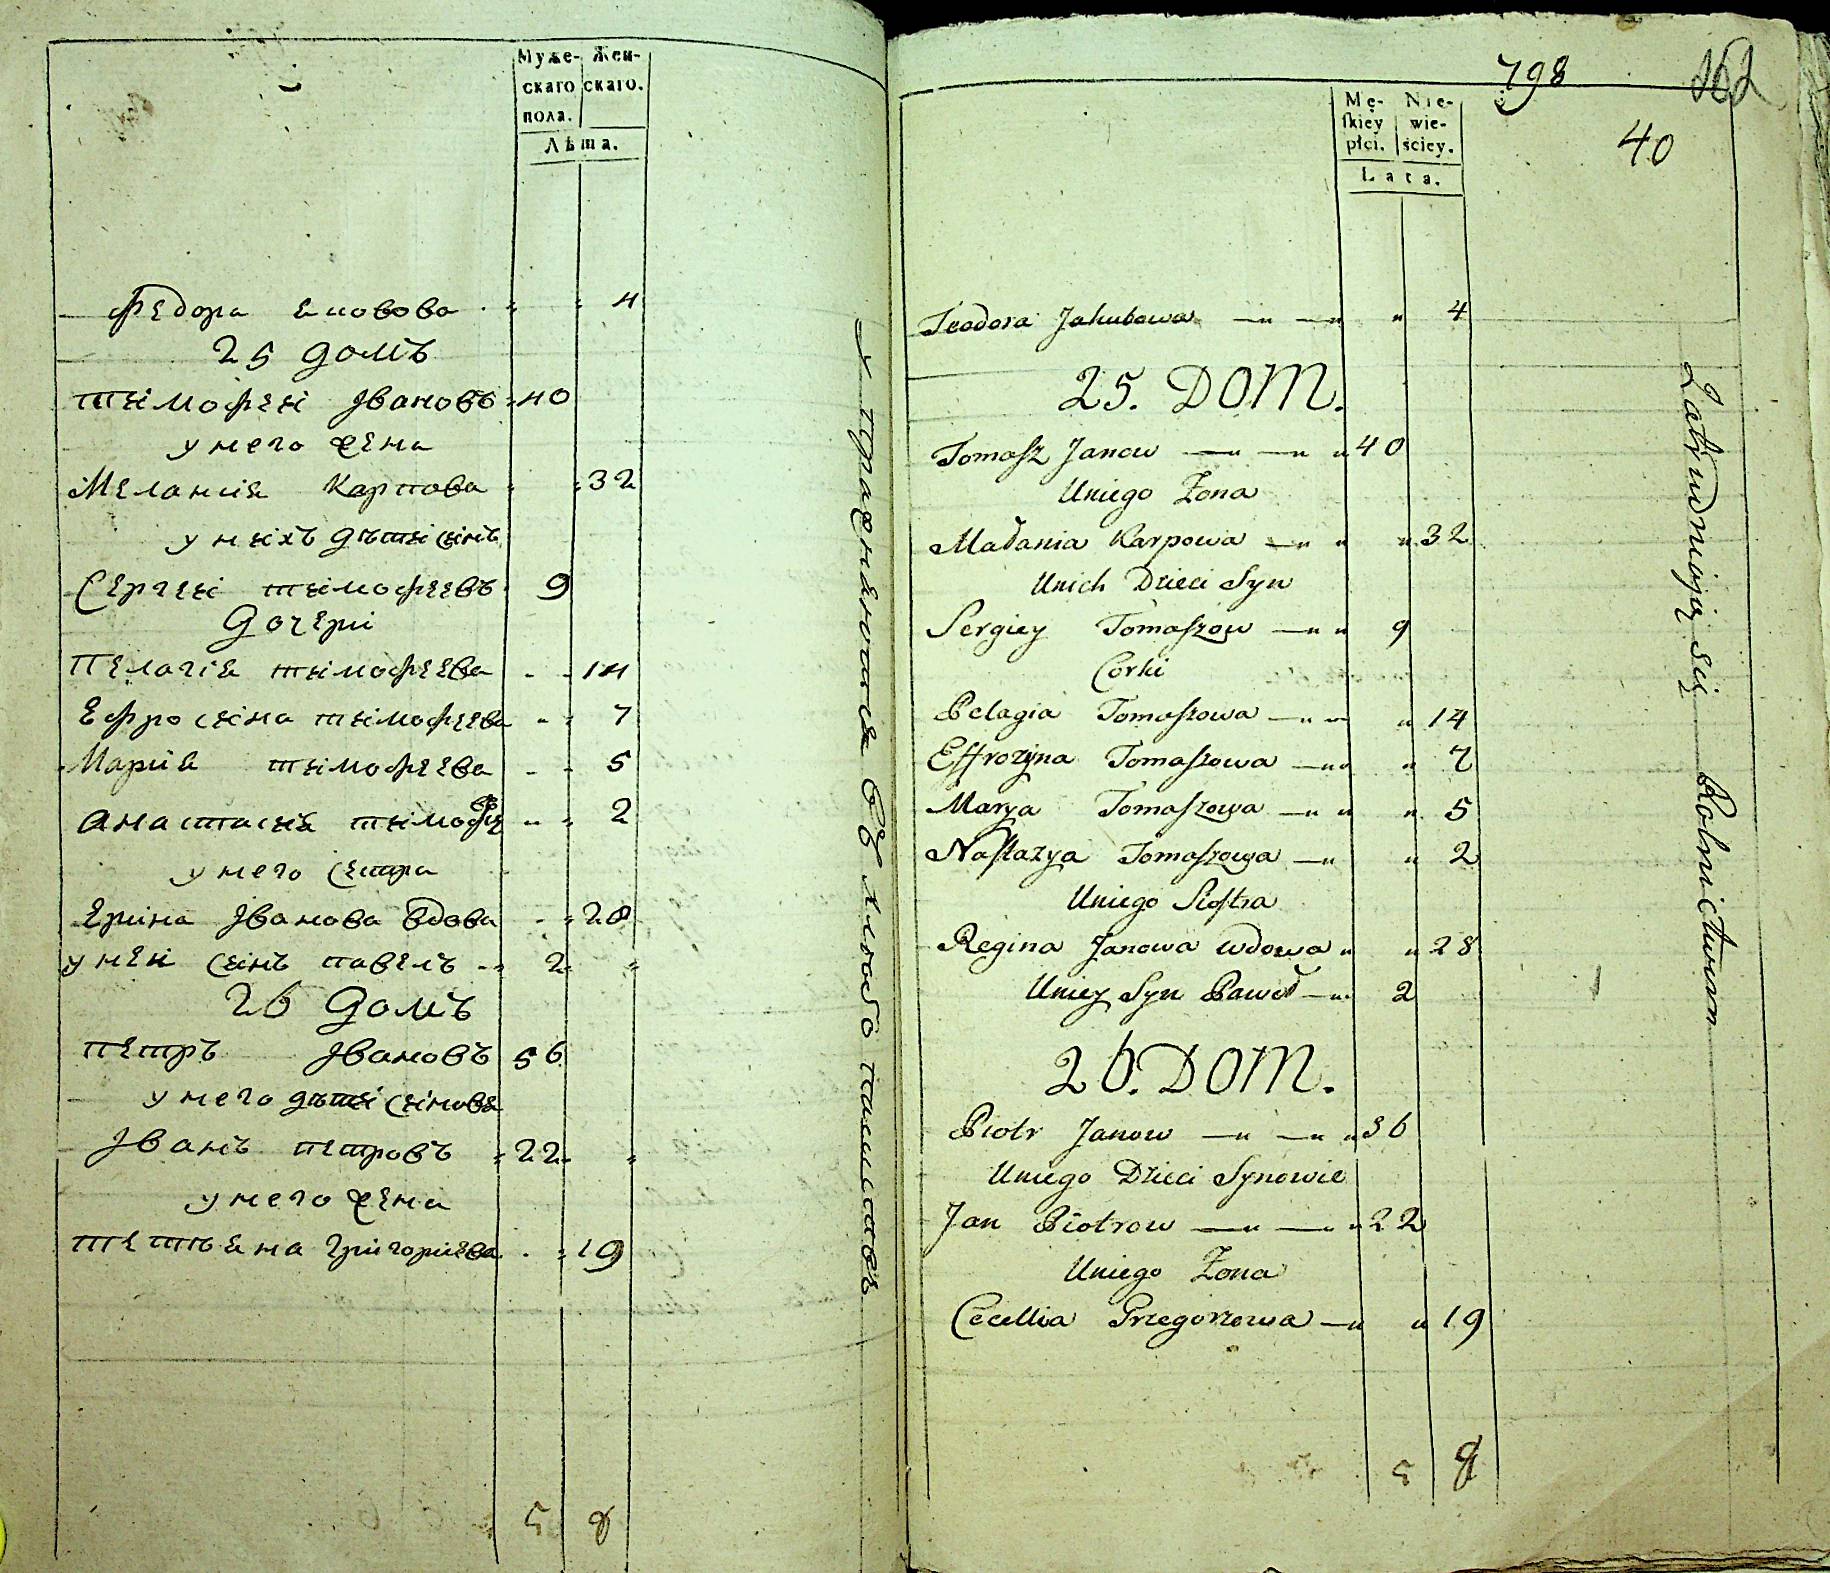 Муже- Жен-
скаго скаго.
пола.
Лѣта.
Федора Ековова 4
25 домъ
тимофеі Івановъ 40
у него жена
Меланія Карпова 32
у ныхъ дѣти сынъ
Сергеі тимофеевъ 9
дочери
Пелагіѧ тимофеева 14
Ефросина тимофеева 7
Маріѧ тимофеева 5
Анастасиѧ тимофеев 2
у него сестра
Ерина Іванова вдова 28
у неи сынъ павелъ 2
26 домъ
петръ Івановъ 56
у него дѣти сыновѧ
Іванъ петровъ 22
у него жена
тетьѧна григориева 19
5 8
798
162
40
Mę- Nie-
ſkiey wie-
płci. ściey.
Lata.
Teodora Jakubowa 4
25. DOM.
Tomaſz Janow 40
Uniego Żona
Małania Karpowa 32
Unich Dzieci Syn
Sergiey Tomaſzow 9
Corki
Pelagia Tomaſzowa 14
Effrozyna Tomaſzowa 7
Marya Tomaſzowa 5
Naſtazya Tomaſzowa 2
Uniego Sioſtra
Regina Janowa wdowa 28
Uniey Syn Paweł 2
26. DOM.
Piotr Janow 56
Uniego Dzieci Synowie
Jan Piotrow 22
Uniego Żona
Cecellia Grzegorzowa 19
5 8
Zatrudniają się Rolnictwem